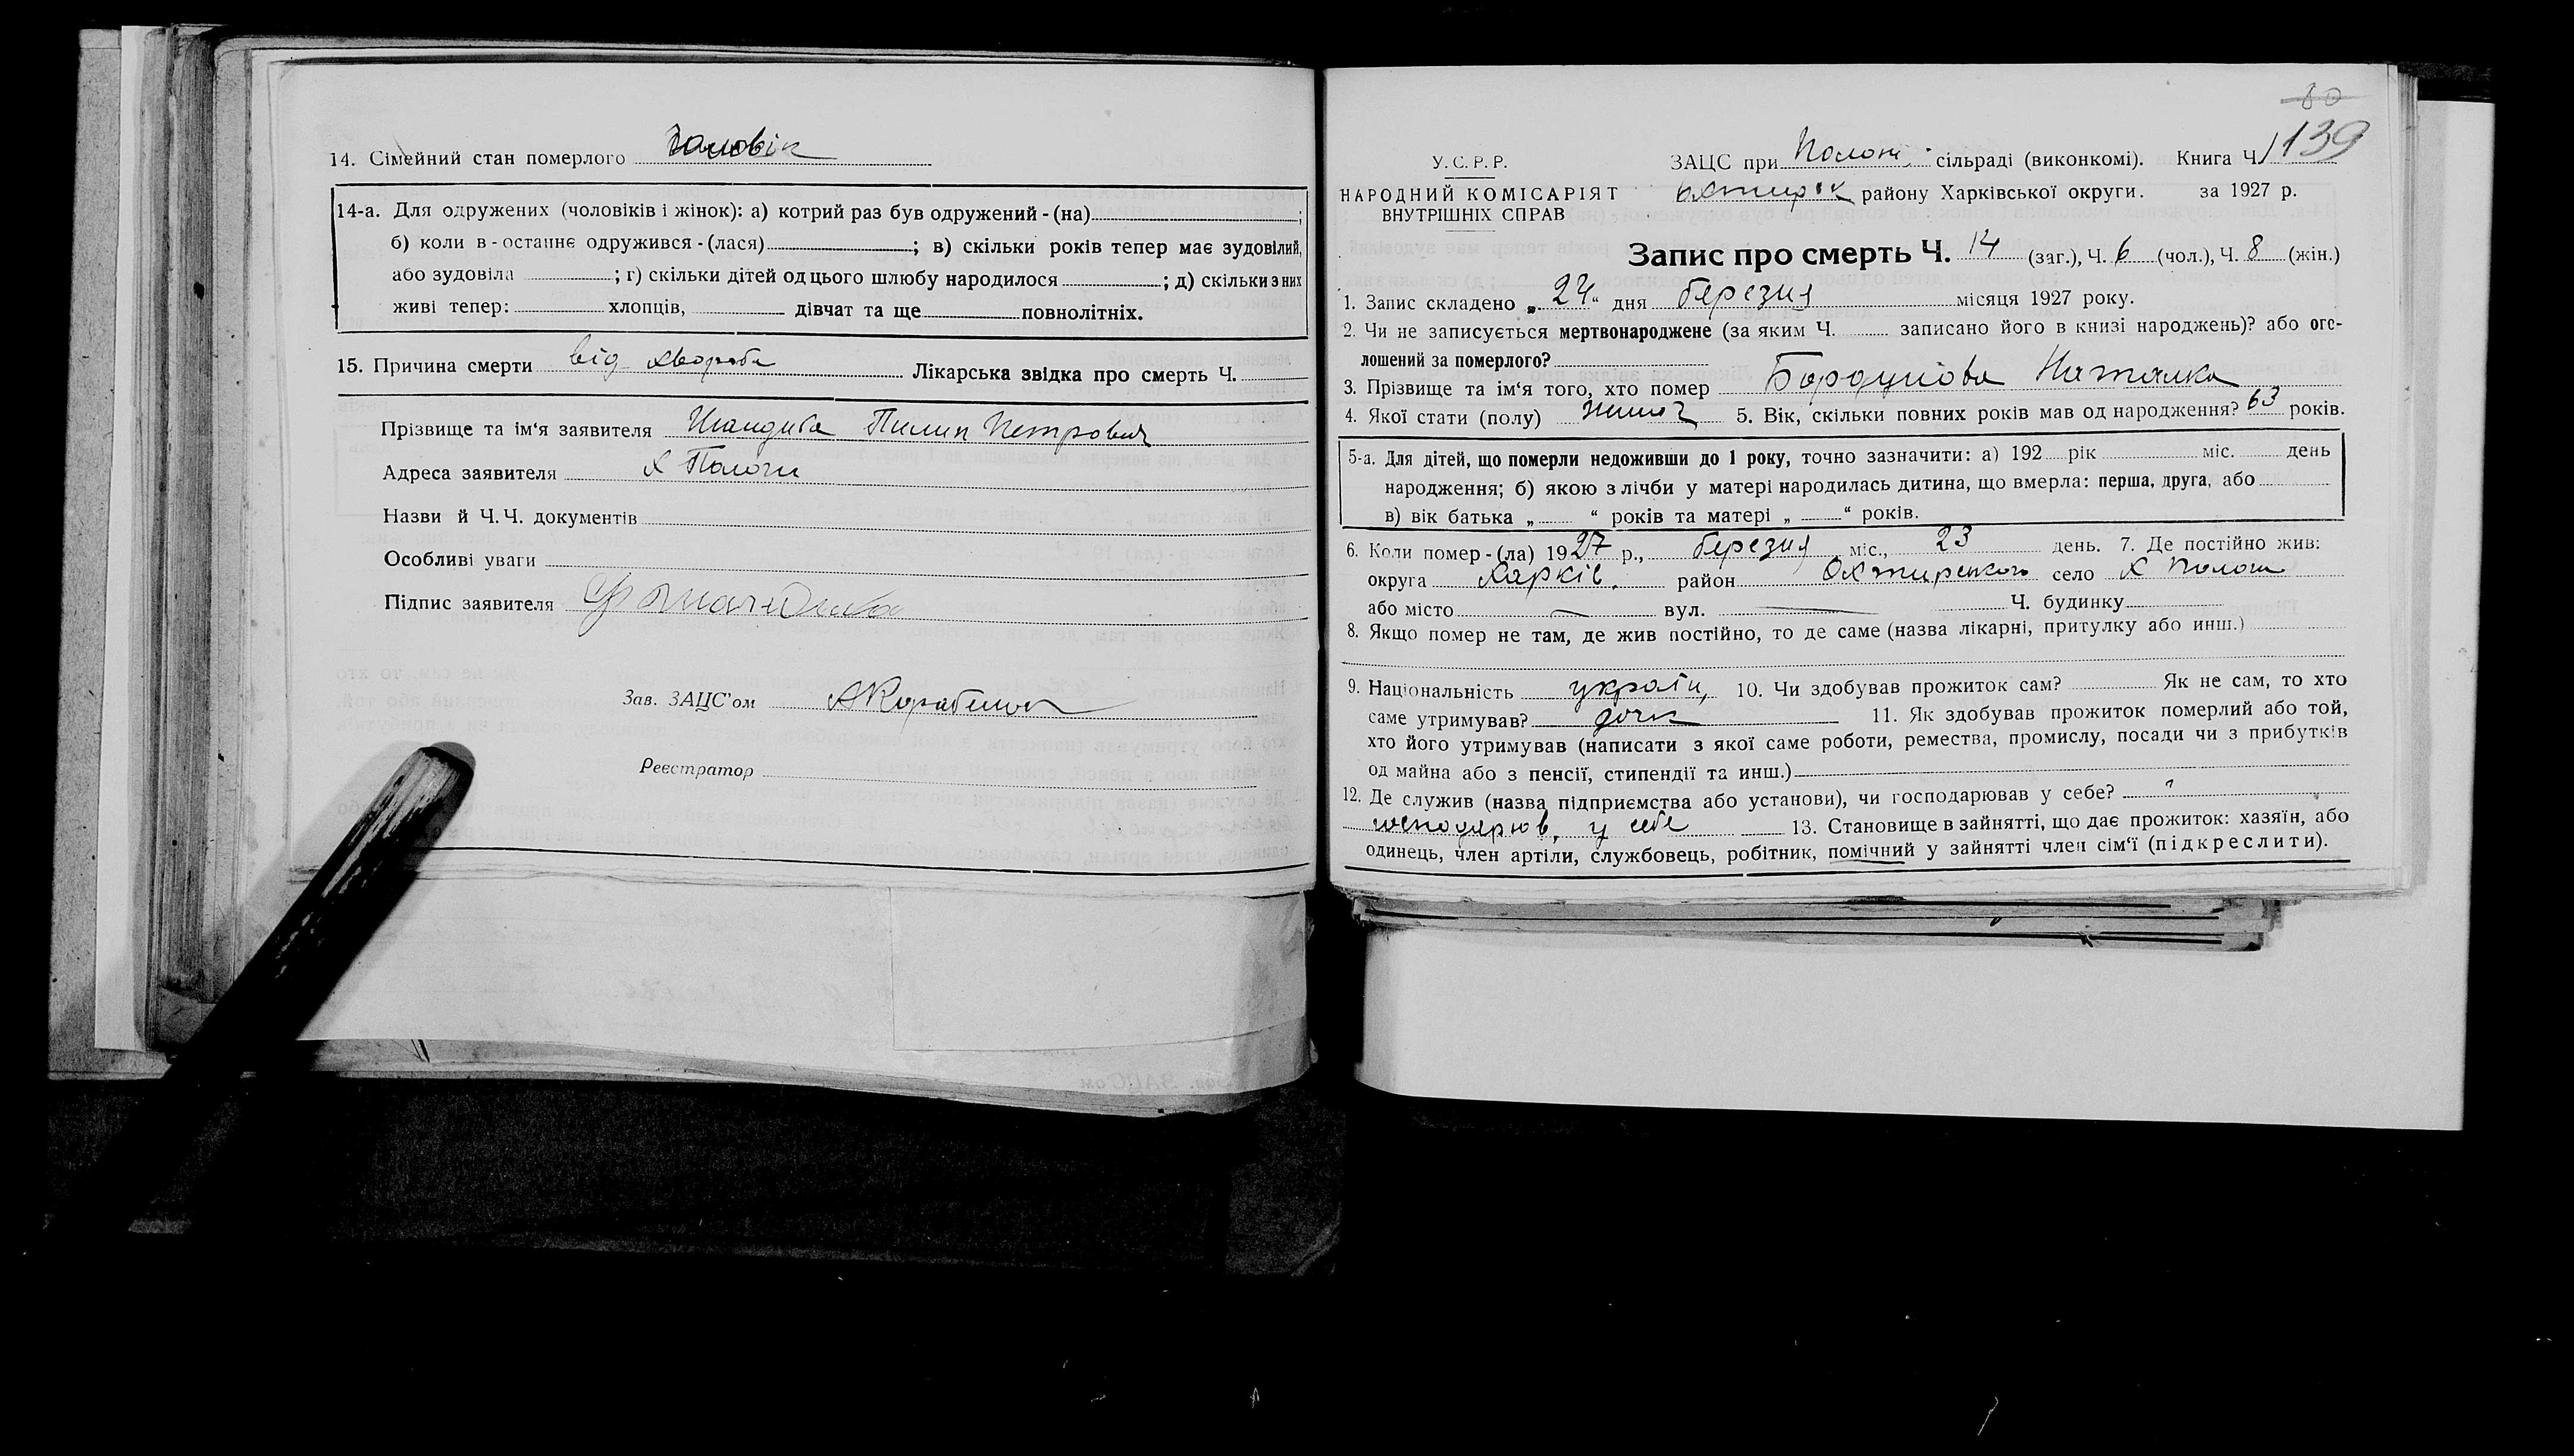 14. Сімейний стан померлого чоловік
14-а. Для одружених (чоловіків і жінок): а) котрий раз був одружений - (на) ;
б) коли в-останнє одружився - (лася) ; в) скільки років тепер має зудовілий,
або зудовіла ; г) скільки дітей од цього шлюбу народилося ; д) скільки з них
живі тепер: хлопців, дівчат та ще повнолітніх.
15. Причина смерти від хвороби Лікарська звідка про смерть Ч.
Прізвище та ім'я заявителя Шандиба Пилип Петрович
Адреса заявителя х Пологи
Назви й Ч.Ч. документів
Особливі уваги
Підпис заявителя
Зав. ЗАЦС'ом
Реєстратор
80
139
У.С.Р.Р.
НАРОДНИЙ КОМІСАРІЯТ
ВНУТРІШНІХ СПРАВ
ЗАЦС при сільраді (виконкомі). Книга Ч.
району Харківської округи. за 1927 р.
Запис про смерть Ч. 14 (заг.), Ч. 6 (чол.), Ч. 8 (жін.)
1. Запис складено „ 24 “ дня березня місяця 1927 року.
2. Чи не записується мертвонароджене (за яким Ч. записано його в книзі народжень)? або ого-
лошений за померлого?
3. Прізвище та ім'я того, хто помер Наталка
4. Якої стати (полу) 5. Вік, скільки повних років мав од народження? 63 років.
5-а. Для дітей, що померли недоживши до 1 року, точно зазначити: а) 192 рік міс. день
народження; б) якою з лічби у матері народилась дитина, що вмерла: перша, друга, або
в) вік батька „ “ років та матері „ “ років.
6. Коли помер - (ла) 1927 р., березня міс., 23 день. 7. Де постійно жив:
округа Харків. район Охтирського село х Пологи
або місто — вул. — Ч. будинку
8. Якщо помер не там, де жив постійно, то де саме (назва лікарні, притулку або инш.)
9. Національність україн, 10. Чи здобував прожиток сам? Як не сам, то хто
саме утримував? дочк 11. Як здобував прожиток померлий або той,
хто його утримував (написати з якої саме роботи, ремества, промислу, посади чи з прибутків
од майна або з пенсії, стипендії та инш.)
12. Де служив (назва підприємства або установи), чи господарював у себе?
господарюв, у себе 13. Становище в зайнятті, що дає прожиток: хазяїн, або
одинець, член артіли, службовець, робітник, помічний у зайнятті член сім'ї (підкреслити).